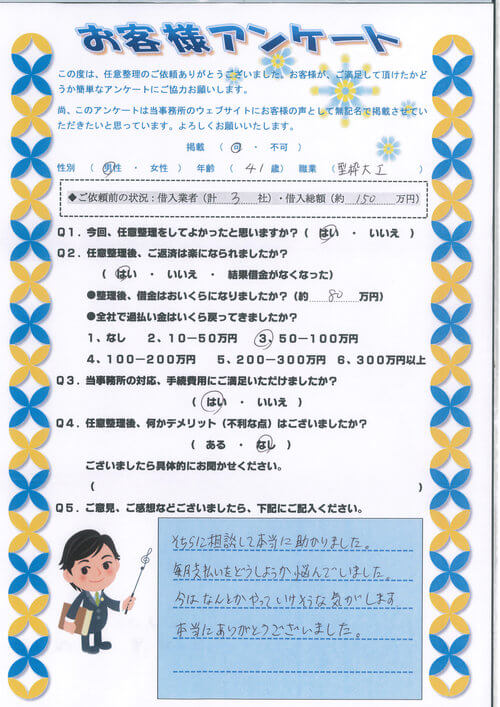 お客様アンケート
この度は、任意整理のご依頼ありがとうございました。お客様が、ご満足して頂けたかど
うか簡単なアンケートにご協力お願いします。
尚、このアンケートは当事務所のウェブサイトにお客様の声として無記名で掲載させてい
ただきたいと思っています。よろしくお願いいたします。
掲載 ( 可 ・ 不可 )
性別 ( 男性 ・ 女性 ) 年齢 ( 41 歳) 職業 ( 型枠大工 )
◆ご依頼前の状況:借入業者(計 3 社)・借入総額(約 150 万円)
Q1.今回、任意整理をしてよかったと思いますか?( はい ・ いいえ )
Q2.任意整理後、ご返済は楽になられましたか?
( はい ・ いいえ ・ 結果借金がなくなった)
●整理後、借金はおいくらになりましたか?(約 80 万円)
●全社で過払い金はいくら戻ってきましたか?
1、なし 2、10-50万円 3、50-100万円
4、100-200万円 5、200-300万円 6、300万円以上
Q3.当事務所の対応、手続費用にご満足いただけましたか?
( はい ・ いいえ )
Q4.任意整理後、何かデメリット(不利な点)はございましたか?
( ある ・ なし )
ございましたら具体的にお聞かせください。
( )
Q5.ご意見、ご感想などございましたら、下記にご記入ください。
そちらに相談して本当に助かりました。
毎月支払いをどうしようか悩んでいました。
今はなんとかやっていけそうな気がします
本当にありがとうございました。